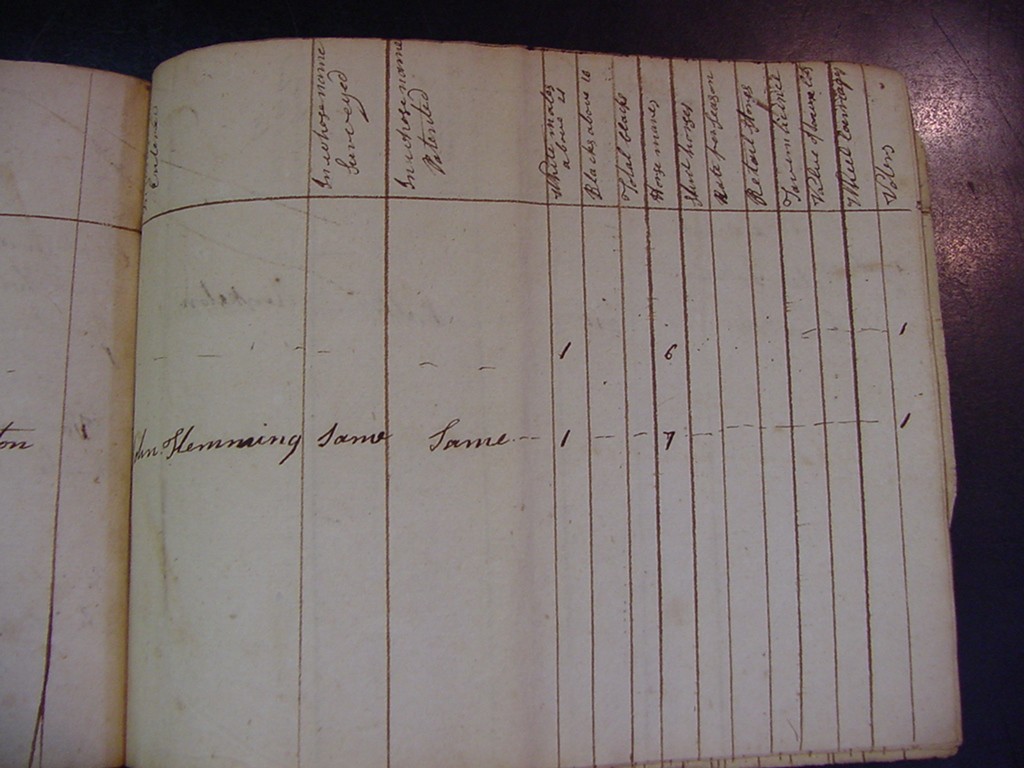 In whose name
Surveyed
In whose name
Patented
White males
above 21
Blacks above 16
Total blacks
Horse mares
Stud horses
Rate pr season
Retail stores
Tavern licence
Value of town lots
Wheel Carriages
Voters
1 6 1
ton
John Flemming Same Same 1 7 1